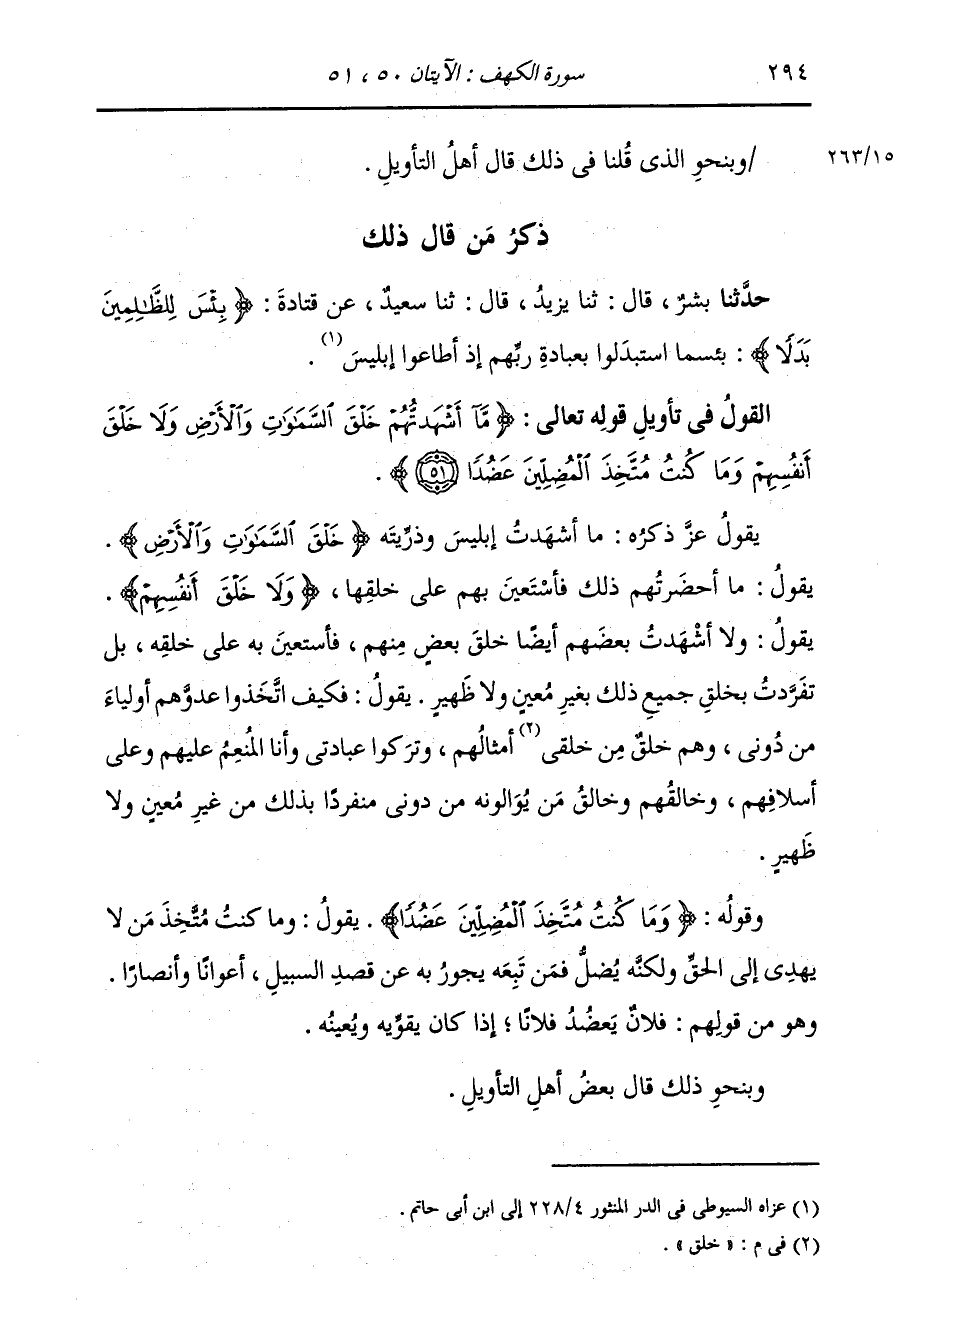 ٢٩٤ سورة الكهف : الآيتان ٥٠ ، ٥١
٢٦٣/١٥ /وبنحوِ الذى قُلنا فى ذلك قال أهلُ التأويلِ .
ذكرُ مَن قال ذلك
حدَّثنا بشرٌ ، قال : ثنا يزيدُ ، قال : ثنا سعيدٌ ، عن قتادةَ : ﴿ بِئْسَ لِلظَّٰلِمِينَ
بَدَلًا ﴾ : بئسما استبدَلوا بعبادةِ ربِّهم إذ أطاعوا إبليسَ(١) .
القولُ فى تأويلِ قولِه تعالى : ﴿ مَّآ أَشْهَدتُّهُمْ خَلْقَ السَّمَٰوَٰتِ وَٱلْأَرْضِ وَلَا خَلْقَ
أَنفُسِهِمْ وَمَا كُنتُ مُتَّخِذَ ٱلْمُضِلِّينَ عَضُدًا ٥١ ﴾ .
يقولُ عزَّ ذكرُه : ما أشهَدتُ إبليسَ وذرِّيتَه ﴿ خَلْقَ ٱلسَّمَٰوَٰتِ وَٱلْأَرْضِ ﴾ .
يقولُ : ما أحضَرتُهم ذلك فأسْتَعينَ بهم على خلقِها ، ﴿ وَلَا خَلْقَ أَنفُسِهِمْ ﴾ .
يقولُ : ولا أشْهَدتُ بعضَهم أيضًا خلقَ بعضٍ مِنهم ، فأستعينَ به على خلقِه ، بل
تفرَّدتُ بخلقِ جميعِ ذلك بغيرِ مُعينٍ ولا ظَهيرٍ . يقولُ : فكيف اتَّخَذوا عدوَّهم أولياءَ
من دُونى ، وهم خلقٌ مِن خلقى(٢) أمثالُهم ، وترَكوا عبادتى وأنا المُنعِمُ عليهم وعلى
أسلافِهم ، وخالقُهم وخالقُ مَن يُوَالونه من دونى منفردًا بذلك من غيرِ مُعينٍ ولا
ظَهيرٍ .
وقولُه : ﴿ وَمَا كُنتُ مُتَّخِذَ ٱلْمُضِلِّينَ عَضُدًا ﴾ . يقولُ : وما كنتُ مُتَّخِذَ مَن لا
يهدِى إلى الحقِّ ولكنَّه يُضلُّ فمَن تَبِعَه يجورُ به عن قصدِ السبيلِ ، أعوانًا وأنصارًا .
وهو من قولِهم : فلانٌ يَعضُدُ فلانًا ؛ إذا كان يقوِّيه ويُعينُه .
وبنحوِ ذلك قال بعضُ أهلِ التأويلِ .
(١) عزاه السيوطى فى الدر المنثور ٢٢٨/٤ إلى ابن أبى حاتم .
(٢) فى م : « خلق » .